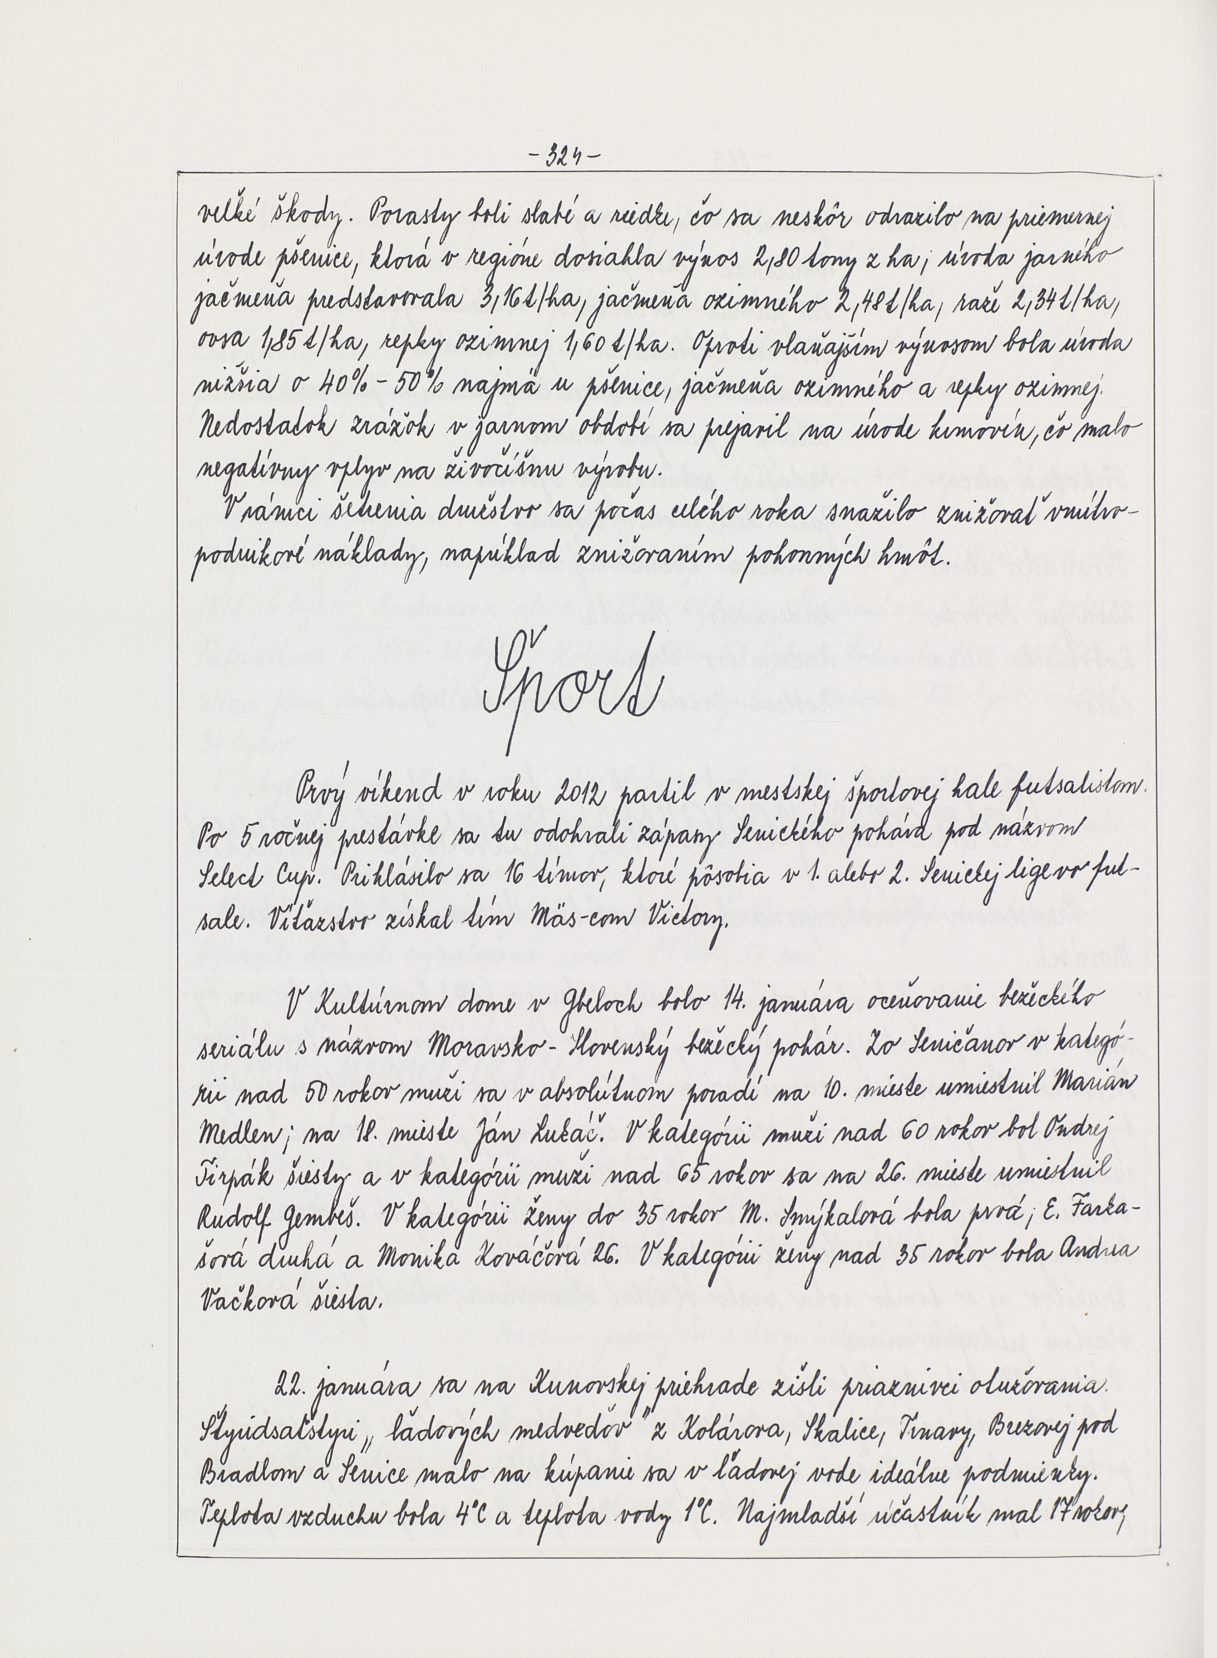 - 324 -
veľké škody. Porasty boli slabé a riedke, čo sa neskôr odrazilo na priemernej
úrode pšenice, ktorá v regióne dosiahla výnos 2,80 tony z ha; úroda jarného
jačmeňa predstavovala 3,16 t/ha, jačmeňa ozimného 2,48 t/ha, raže 2,34 t/ha,
ovsa 1,85 t/ha, repky ozimnej 1,60 t/ha. Oproti vlaňajším výnosom bola úroda
nižšia o 40% - 50% najmä u pšenice, jačmeňa ozimného a repky ozimnej.
Nedostatok zrážok v jarnom období sa prejavil na úrode krmovín, čo malo
negatívny vplyv na živočíšnu výrobu.
V rámci šetrenia družstvo sa počas celého roka snažilo znižovať vnútro-
podnikové náklady, napríklad znižovaním pohonných hmôt.
Šport
Prvý víkend v roku 2012 patril v mestskej športovej hale futsalistom.
Po 5 ročnej prestávke sa tu odohrali zápasy Senického pohára pod názvom
Select Cup. Prihlásilo sa 16 tímov, ktoré pôsobia v 1. alebo 2. Senickej lige vo fut-
sale. Víťazstvo získal tím Mäs-com Victory.
V Kultúrnom dome v Gbeloch bolo 14. januára oceňovanie bežeckého
seriálu s názvom Moravsko - Slovenský bežecký pohár. Zo Seničanov v kategó-
rii nad 50 rokov muži sa v absolútnom poradí na 10. mieste umiestnil Marián
Medlen; na 18. mieste Ján Lukáč. V kategórii muži nad 60 rokov bol Ondrej
Tirpák šiesty a v kategórii muži nad 65 rokov sa na 26. mieste umiestnil
Rudolf Gembeš. V kategórii ženy do 35 rokov M. Smýkalová bola prvá; E. Farka-
šová druhá a Monika Kováčová 26. V kategórii ženy nad 35 rokov bola Andrea
Vačková šiesta.
22. januára sa na Kunovskej priehrade zišli priaznivci otužovania.
Štyridsaťštyri „ ľadových medveďov " z Kolárova, Skalice, Trnavy, Brezovej pod
Bradlom a Senice malo na kúpanie sa v ľadovej vode ideálne podmienky.
Teplota vzduchu bola 4°C a teplota vody 1°C. Najmladší účastník mal 17 rokov;